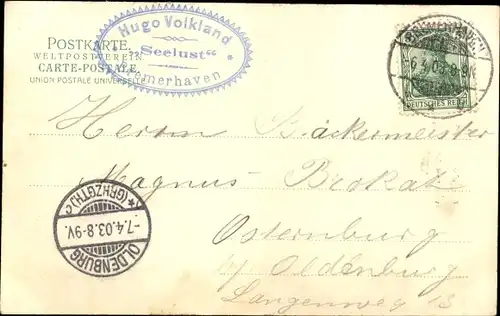 POSTKARTE.
WELTPOSTVEREIN.
CARTE-POSTALE.
UNION POSTALE UNIVERSELLE.
Hugo Volkland
"Seelust"
Bremerhaven
BREMERHAVEN
-6.4.03.8-9N.
DEUTSCHES REICH
Herrn Bäckermeister
Magnus Brokat
Osternburg
by Oldenburg
Langenweg 13
*(GRHZGTH.)c
-7.4.03.8-9V.
OLDENBURG